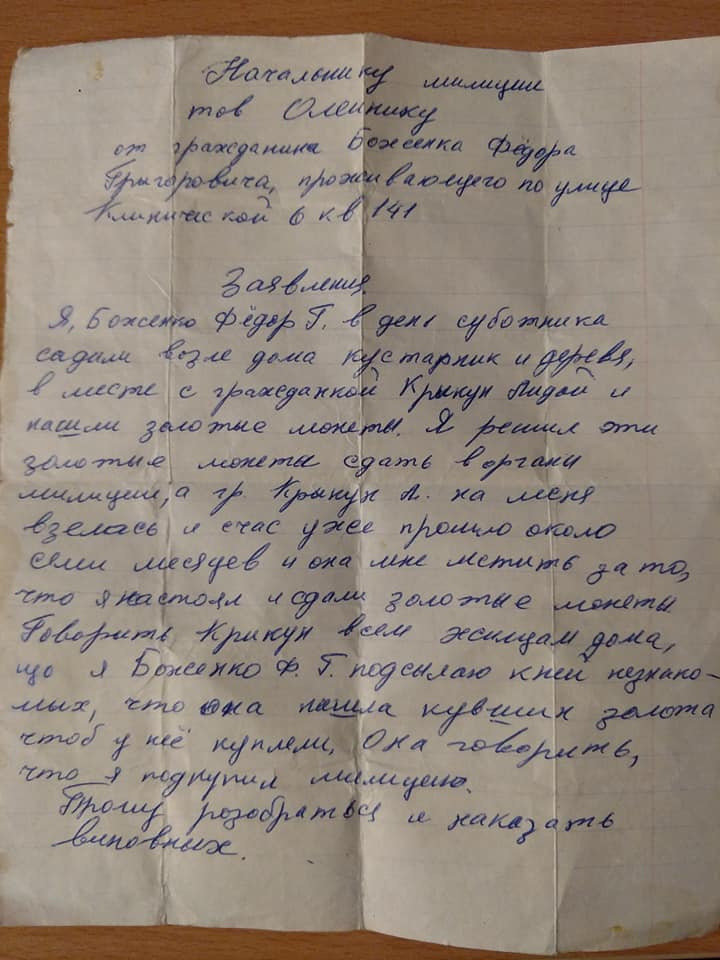 Начальнику милиции
тов Олейнику
от гражданина Боженка Фёдора
Григоровича, проживающего по улице
Клинической 6 кв 141
Заявления.
Я, Боженко Фёдор Г. в день суботника
садили возле дома кустарник и деревя,
в месте с гражданкой Крыкун Лидой и
нашли золотые монеты. Я решил эти
золотые монеты сдать в органы
милиции, а гр. Крыкун Л. на меня
взелась и счас уже прошло около
семи месяцев и она мне мстить за то,
что я настоял и сдали золотые монеты
Говорить Крикун всем жилцам дома,
що я Боженко Ф. Г. подсылаю к ней незнако-
мых, что она нашла кувшин золота
чтоб у неё куплели. Она говорить,
что я подкупил милицию.
Прошу розобраться и наказать
виновных.